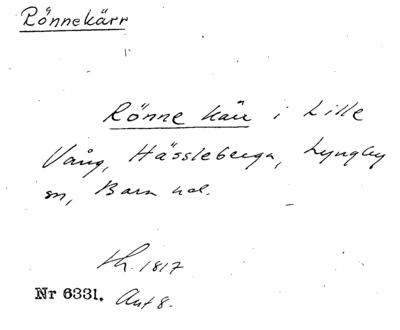 Rönnekärr
Rönne kärr i Lille
Vång, Hässleberga, Lyngby
sn, Bara hd.
th. 1817
Nr 6331. Akt 8.